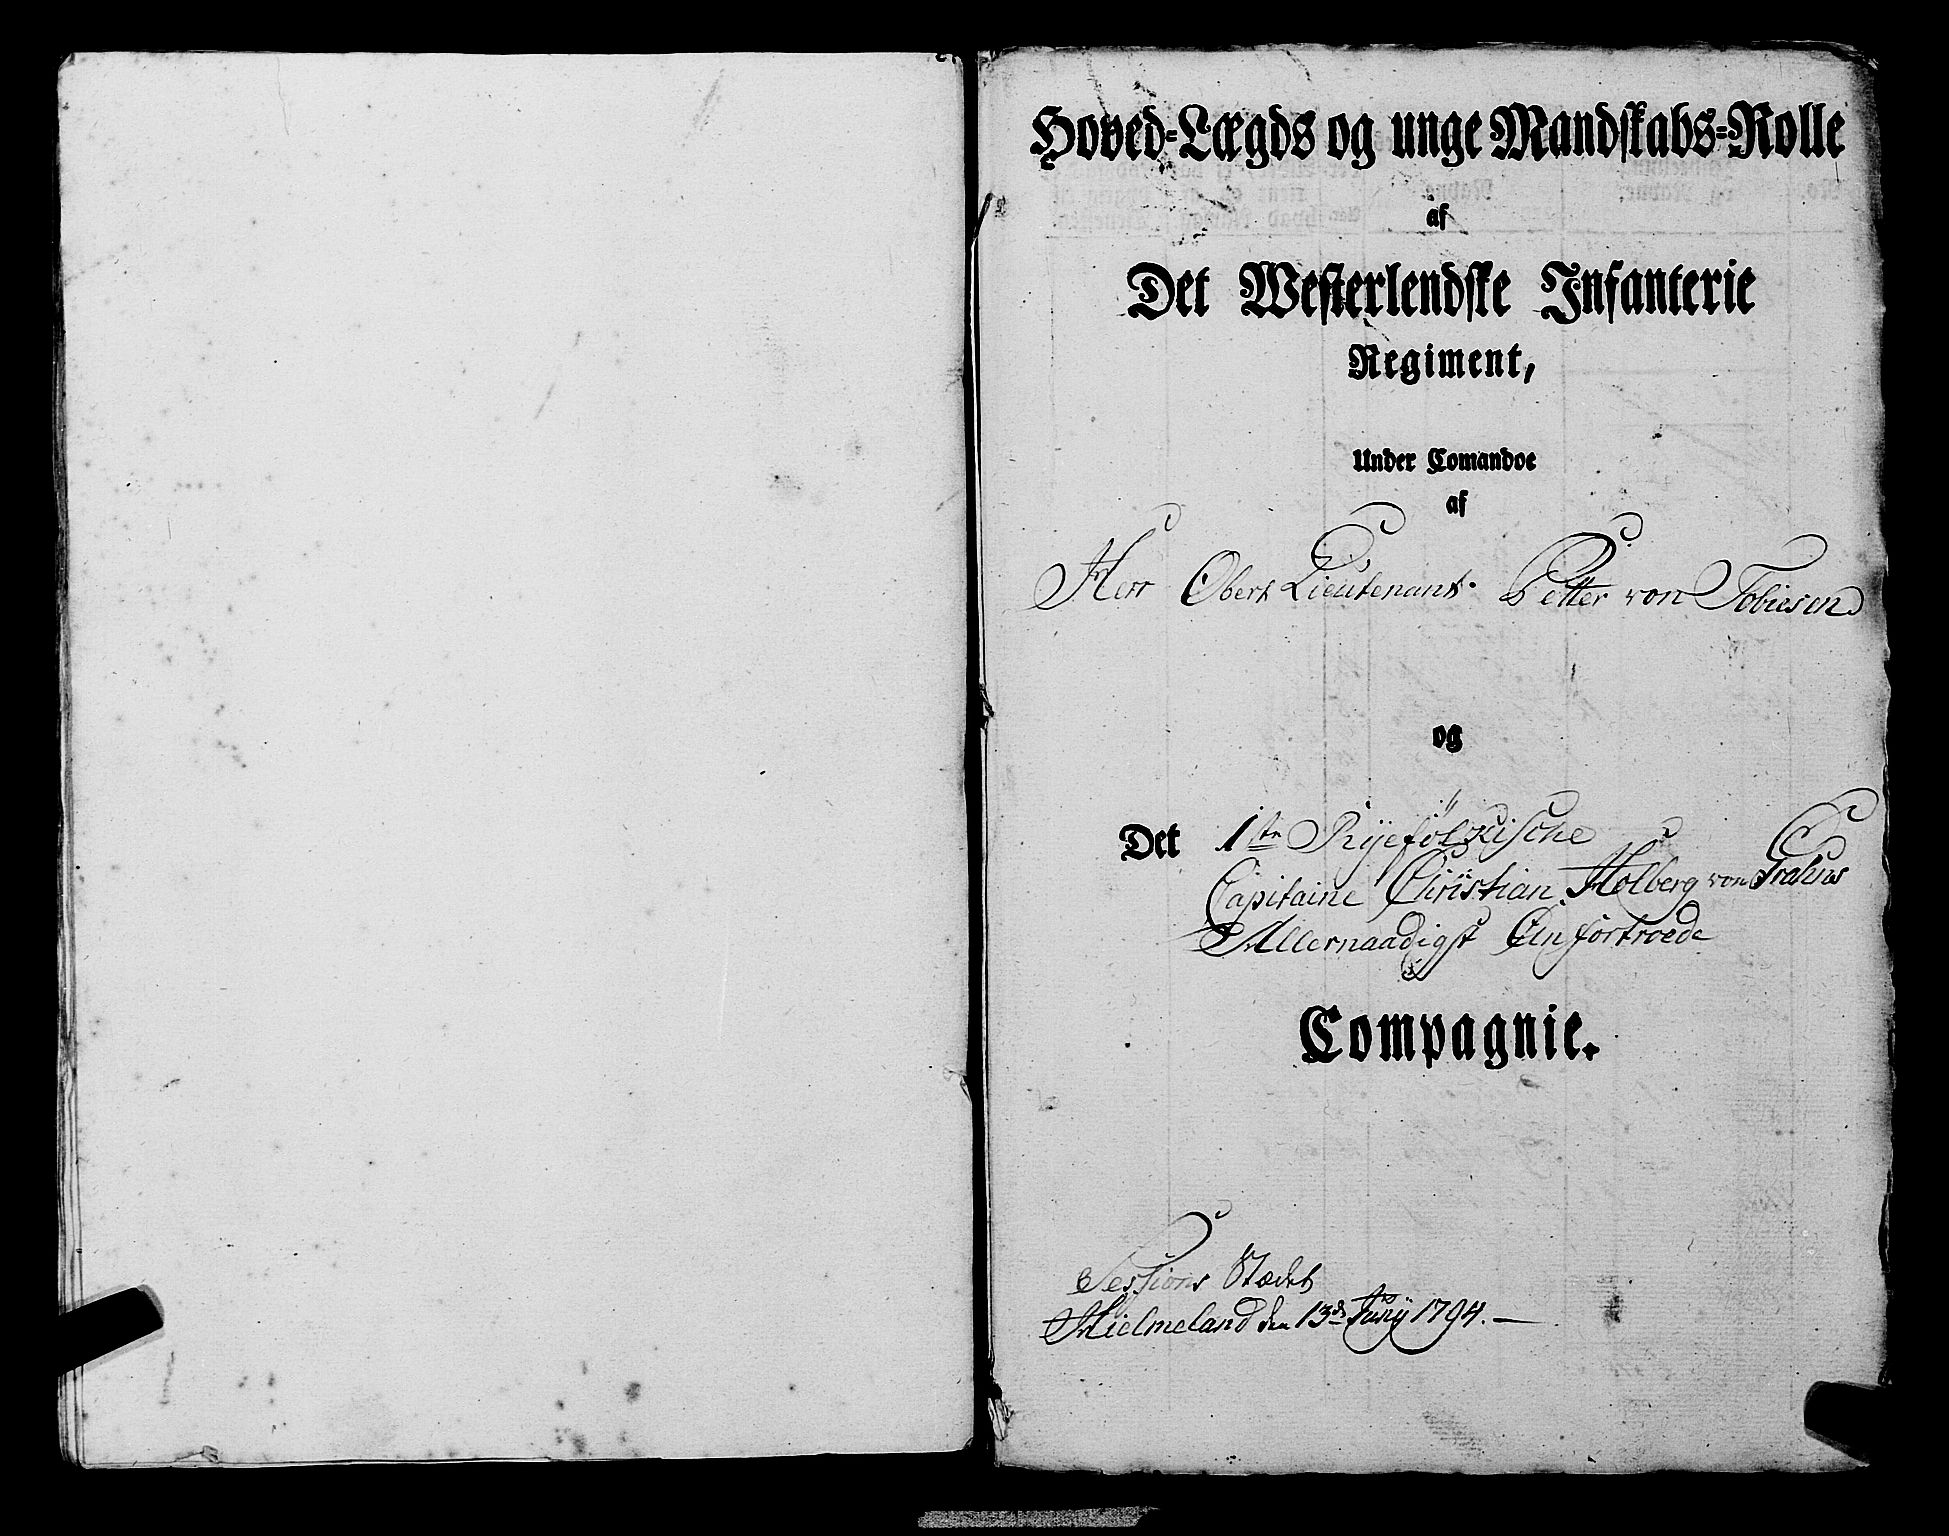 Hoved-Lægds og unge Mandskabs-Rolle
af
Det Westerlendske Infanterie
Regiment,
Under Comandoe
af
Herr Oberst Lieutenant Petter von Tobiesen
og
Det 1ste Ryefölkische
Capitaine Christian Holberg von
Allernaadigst Anfortroede
Compagnie.
Sessions Stædet
Hielmeland den 13de Juny 1794.